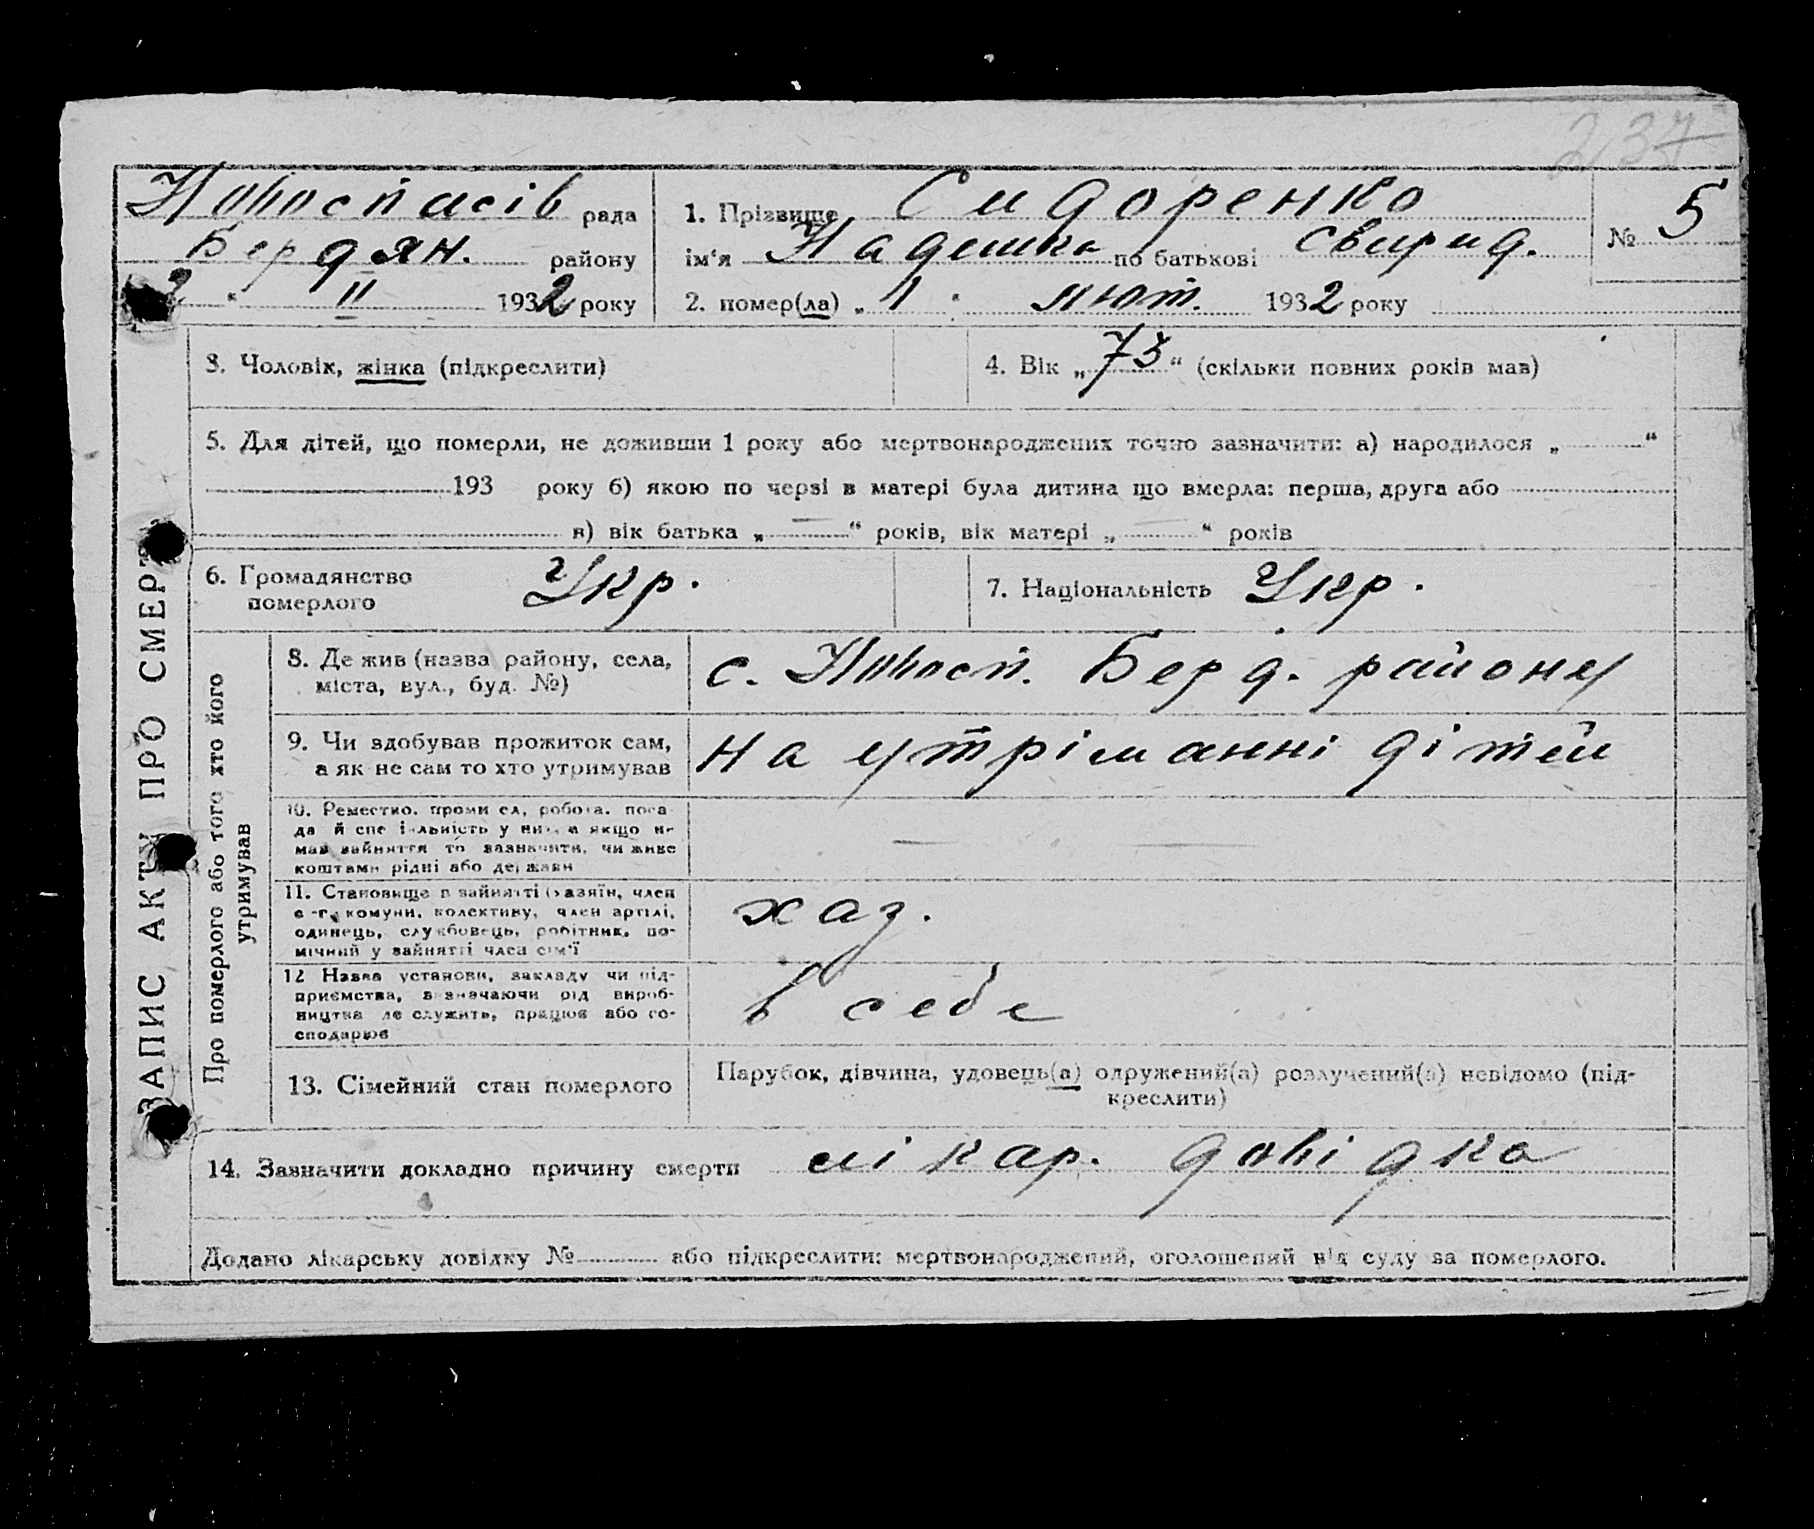 237
Новоспасів рада
Бердян. району
2 " II 1932 року
1. Прізвище Сидоренко
ім'я Надешка по батькові Свирид.
2. помер(ла) „ 1 " лют. 1932 року
№ 5
ЗАПИС АКТУ ПРО СМЕРТЬ
3. Чоловік, жінка (підкреслити)
4. Вік „ 73 “ (скільки повних років мав)
5. Для дітей, що померли, не доживши 1 року або мертвонароджених точно зазначити: а) народилося „ “
193 року б) якою по черзі в матері була дитина що вмерла: перша, друга або
в) вік батька „ — “ років, вік матері „ — “ років
6. Громадянство
померлого Укр.
7. Національність Укр.
Про померлого або того хто його
утримував
8. Де жив (назва району, села,
міста, вул., буд. №)
с. Новосп. Берд. району
9. Чи здобував прожиток сам,
а як не сам то хто утримував
на утріманні дітей
10. Ремество, промисел, робота, поса-
да й спеціяльність у ній, а якщо не
мав зайняття то зазначити, чи живе
коштами рідні або держави
— —
11. Становище в зайнятті (хазяїн, член
с-г. комуни, колективу, член артілі,
одинець, службовець, робітник, по-
мічний у зайнятті член сім'ї
хаз.
12 Назва установи, закладу чи під-
приємства, зазначаючи рід вироб-
ництва де служить, працює або го-
сподарює
в себе
13. Сімейний стан померлого
Парубок, дівчина, удовець(а) одружений(а) розлучений(а) невідомо (під-
креслити)
14. Зазначити докладно причину смерти лікар. довідка
Додано лікарську довідку № або підкреслити: мертвонароджений, оголошений від суду за померлого.